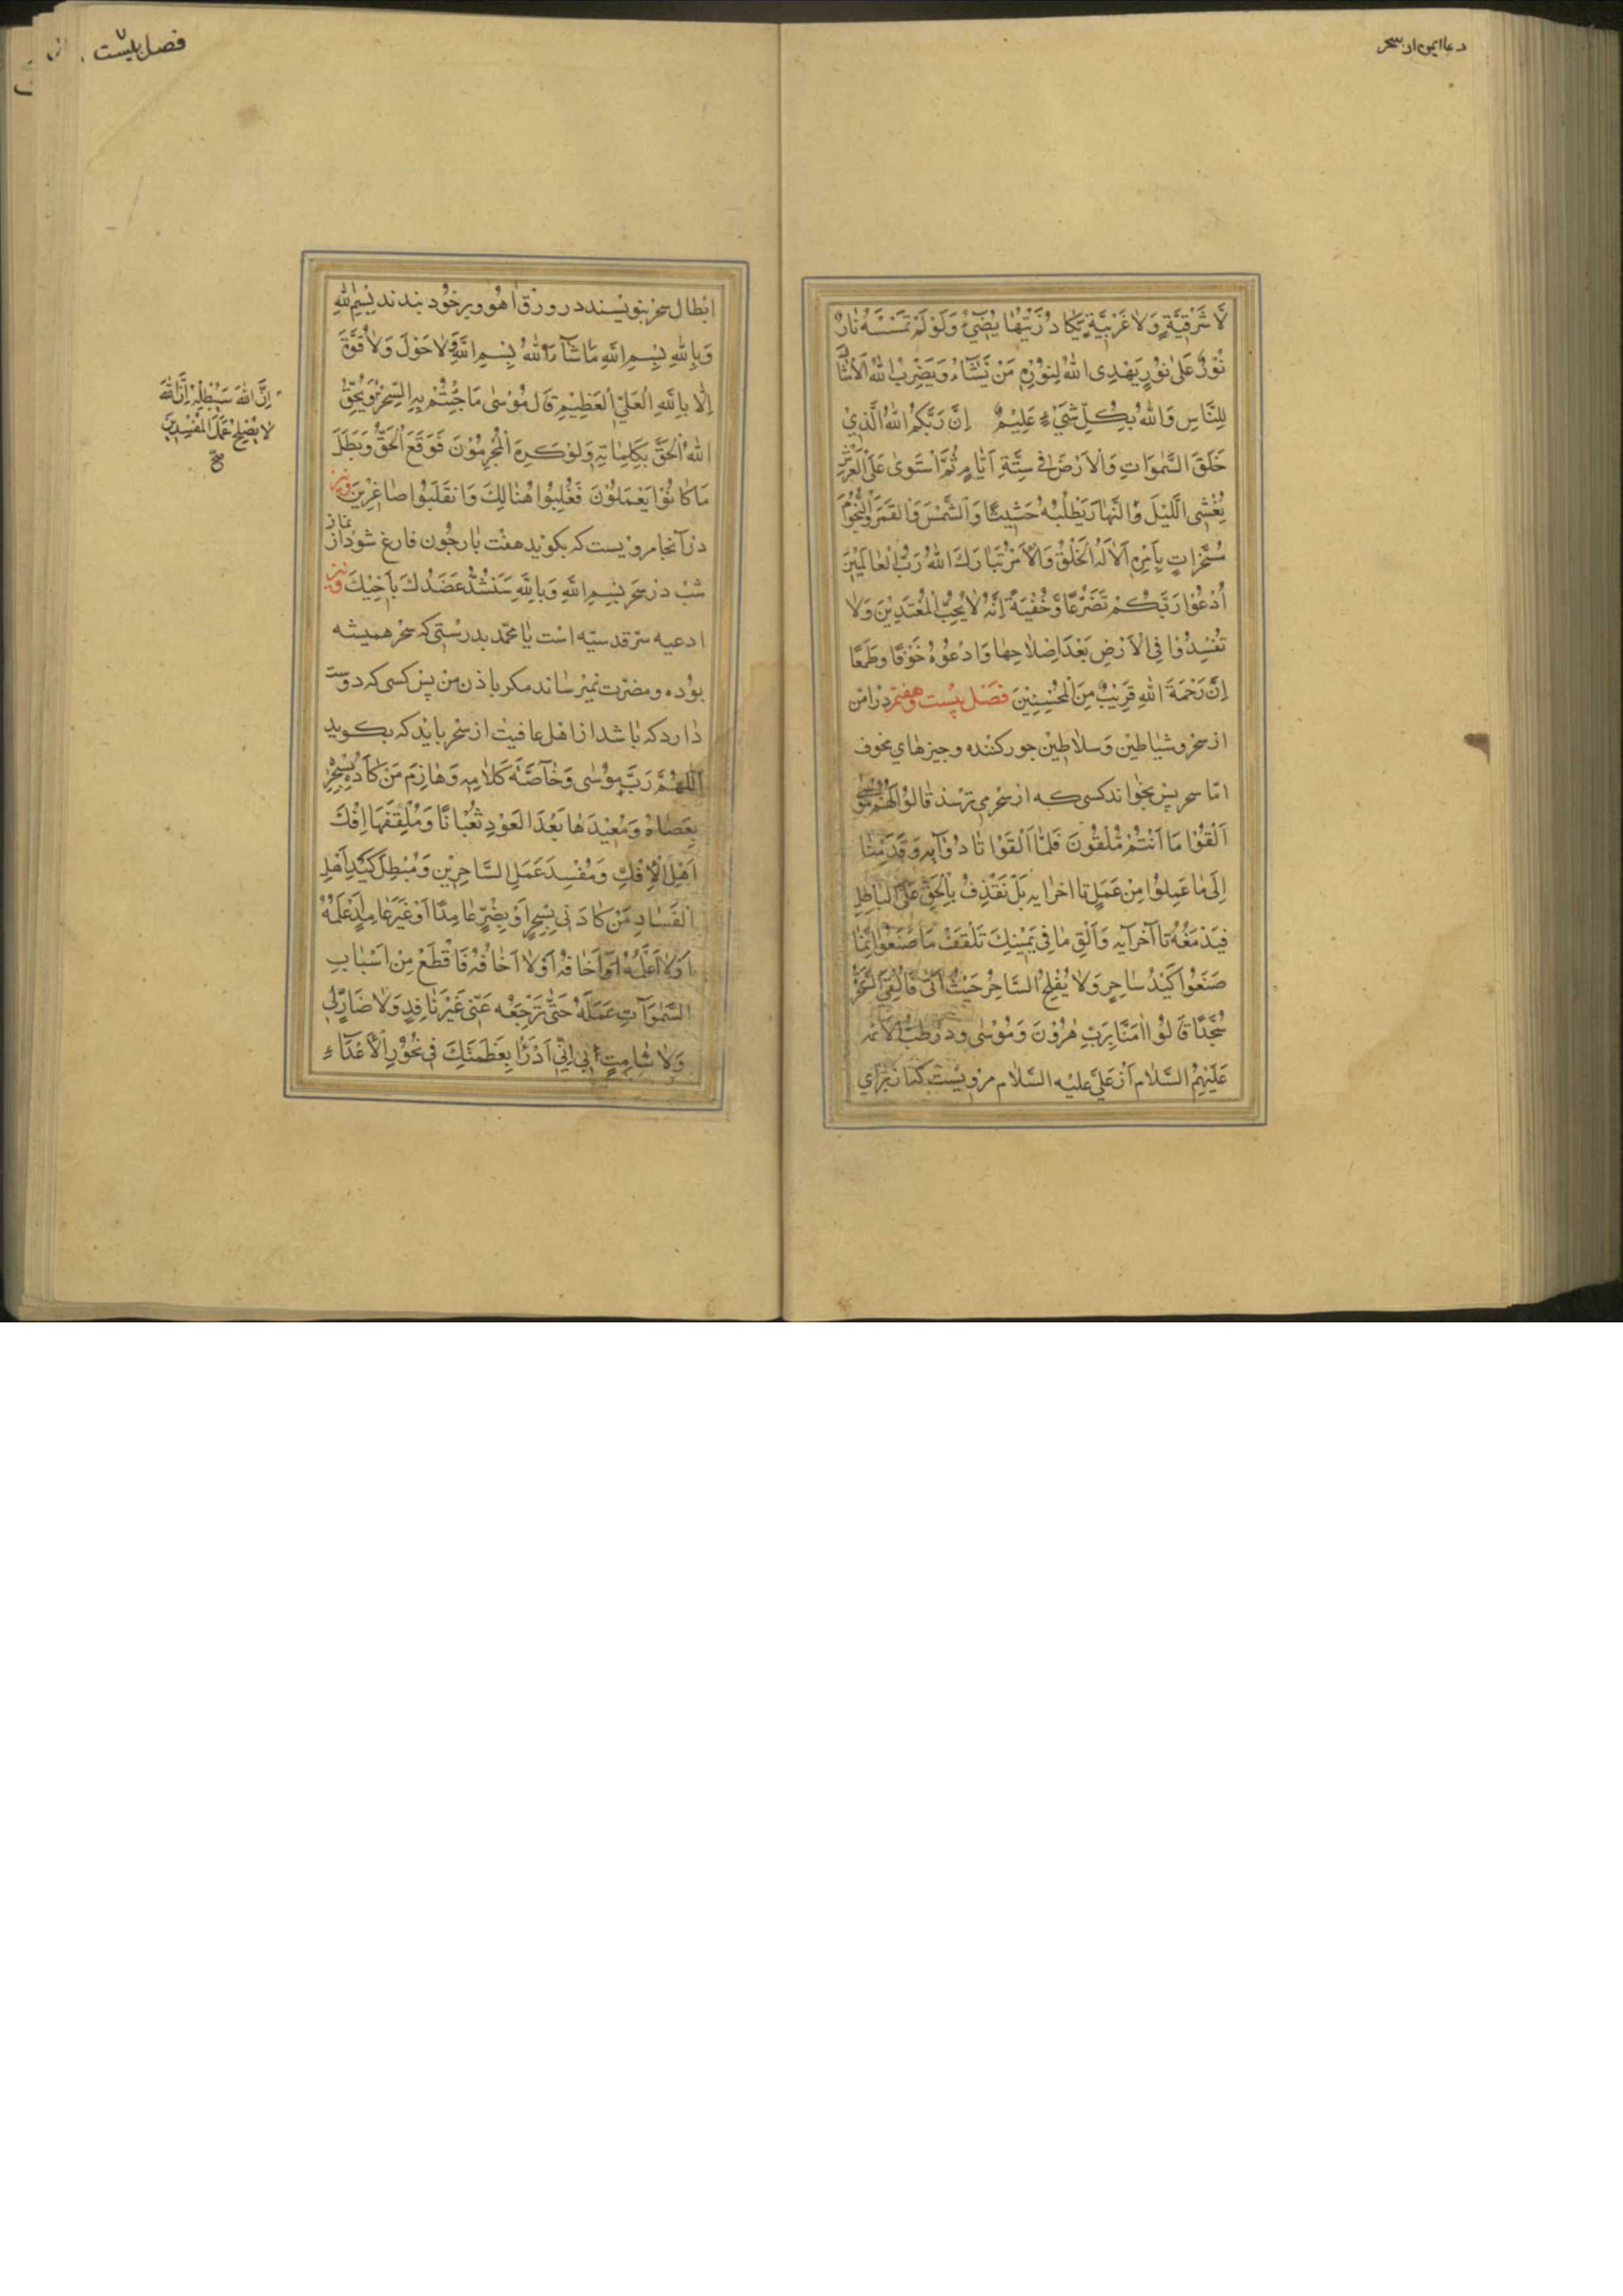 دعا ایمن از سحر
لَّا شَرْقِيَّةٍ وَلَا غَرْبِيَّةٍ يَكَادُ زَيْتُهَا يُضِيءُ وَلَوْ لَمْ تَمْسَسْهُ نَارٌ
نُورٌ عَلَىٰ نُورٍ يَهْدِي اللهُ لِنُورِهِ مَنْ يَشَاءُ وَيَضْرِبُ اللهُ الْأَمْثَالَ
لِلنَّاسِ وَاللهُ بِكُلِّ شَيْءٍ عَلِيمٌ إِنَّ رَبَّكُمُ اللهُ الَّذِي
خَلَقَ السَّمٰوَاتِ وَالْأَرْضَ فِي سِتَّةِ أَيَّامٍ ثُمَّ اسْتَوَىٰ عَلَى الْعَرْشِ
يُغْشِي اللَّيْلَ وَالنَّهَارَ يَطْلُبُهُ حَثِيثًا وَالشَّمْسَ وَالْقَمَرَ وَالنُّجُومَ
مُسَخَّرَاتٍ بِأَمْرِهِ أَلَا لَهُ الْخَلْقُ وَالْأَمْرُ تَبَارَكَ اللهُ رَبُّ الْعَالَمِينَ
اُدْعُوا رَبَّكُمْ تَضَرُّعًا وَّخُفْيَةً إِنَّهُ لَا يُحِبُّ الْمُعْتَدِينَ وَلَا
تُفْسِدُوا فِي الْأَرْضِ بَعْدَ إِصْلَاحِهَا وَادْعُوهُ خَوْفًا وَطَمَعًا
إِنَّ رَحْمَةَ اللهِ قَرِيبٌ مِنَ الْمُحْسِنِينَ فصل بیست و هفتم در امن
از سحر و شیاطین و سلاطین جور کننده و چیزهای مخوف
اما سحر پس بخواند کسی که از سحر می ترسد قَالَ لَهُمْ مُوسَىٰ
أَلْقُوا مَا أَنْتُمْ مُلْقُونَ فَلَمَّا أَلْقَوْا تا دو آیه وَقَدِمْنَا
إِلَىٰ مَا عَمِلُوا مِنْ عَمَلٍ تا اخر ایه بَلْ نَقْذِفُ بِالْحَقِّ عَلَى الْبَاطِلِ
فَيَدْمَغُهُ تا آخر آیه وَأَلْقِ مَا فِي يَمِينِكَ تَلْقَفْ مَا صَنَعُوا إِنَّمَا
صَنَعُوا كَيْدُ سَاحِرٍ وَلَا يُفْلِحُ السَّاحِرُ حَيْثُ أَتَىٰ فَأُلْقِيَ السَّحَرَةُ
سُجَّدًا قَالُوا اٰمَنَّا بِرَبِّ هٰرُونَ وَمُوسَىٰ و در طب الائمه
علیهم السلام از علی علیه السلام مرویست که از برای
فصل بیست ۷
ابطال سحر بنویسند در ورق اهو و بر خود بندند بِسْمِ اللهِ
وَبِاللهِ بِسْمِ اللهِ مَا شَآءَ اللهُ بِسْمِ اللهِ وَلَا حَوْلَ وَلَا قُوَّةَ
إِلَّا بِاللهِ الْعَلِيِّ الْعَظِيمِ قَالَ مُوسَىٰ مَا جِئْتُمْ بِهِ السِّحْرُ وَيُحِقُّ
إِنَّ اللهَ سَيُبْطِلُهُ إِنَّ اللهَ
لَا يُصْلِحُ عَمَلَ الْمُفْسِدِينَ
صح
اللهُ الْحَقَّ بِكَلِمَاتِهِ وَلَوْ كَرِهَ الْمُجْرِمُونَ فَوَقَعَ الْحَقُّ وَبَطَلَ
مَا كَانُوا يَعْمَلُونَ فَغُلِبُوا هُنَالِكَ وَانْقَلَبُوا صَاغِرِينَ ونیز
در آنجا مرویست که بگوید هفت بار چون فارغ شود از نماز
شب در سحر بِسْمِ اللهِ وَبِاللهِ سَنَشُدُّ عَضُدَكَ بِأَخِيكَ ونیز
ادعیه سر قدسیه است یا محمد بدرستی که سحر همیشه
بوده و مضرت نمیرساند مکر باذن من پس کسی که دوست
دارد که باشد از اهل عافیت از سحر باید که بگوید
اَللّٰهُمَّ رَبَّ مُوسَىٰ وَخَآصَّهُ كَلَامِهِ وَهَازِمَ مَنْ كَادَهُ بِسِحْرِهِ
بِعَصَاهُ وَمُعِيدَهَا بَعْدَ الْعَوْدِ ثُعْبَانًا وَمُلْقِفَهَا إِفْكَ
أَهْلِ الْإِفْكِ وَمُفْسِدَ عَمَلِ السَّاحِرِينَ وَمُبْطِلَ كَيْدِ أَهْلِ
الْفَسَادِ مَنْ كَادَنِي بِسِحْرٍ أَوْ بِضُرٍّ عَامِدًا أَوْ غَيْرَ عَامِدٍ أَعْلَمُهُ
أَوْ لَا أَعْلَمُهُ أَوْ أَخَافُهُ أَوْ لَا أَخَافُهُ فَاقْطَعْ مِنْ أَسْبَابِ
السَّمٰوَاتِ عَمَلَهُ حَتَّىٰ تَرْجِعَهُ عَنِّي غَيْرَ نَافِذٍ وَلَا ضَارٍّ لِي
وَلَا شَامِتٍ بِي إِنِّي أَدْرَأُ بِعَظَمَتِكَ فِي نُحُورِ الْأَعْدَآءِ